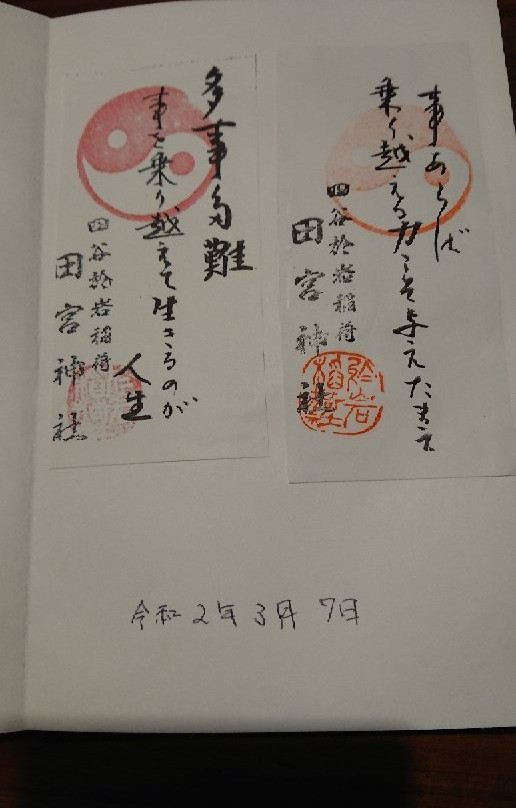 事あらば
乗り越える力を与えたまえ
四谷於岩稲荷
田宮神社
多事多難
事を乗り越えて生きるのが
人生
四谷於岩稲荷
田宮神社
令和2年3月7日